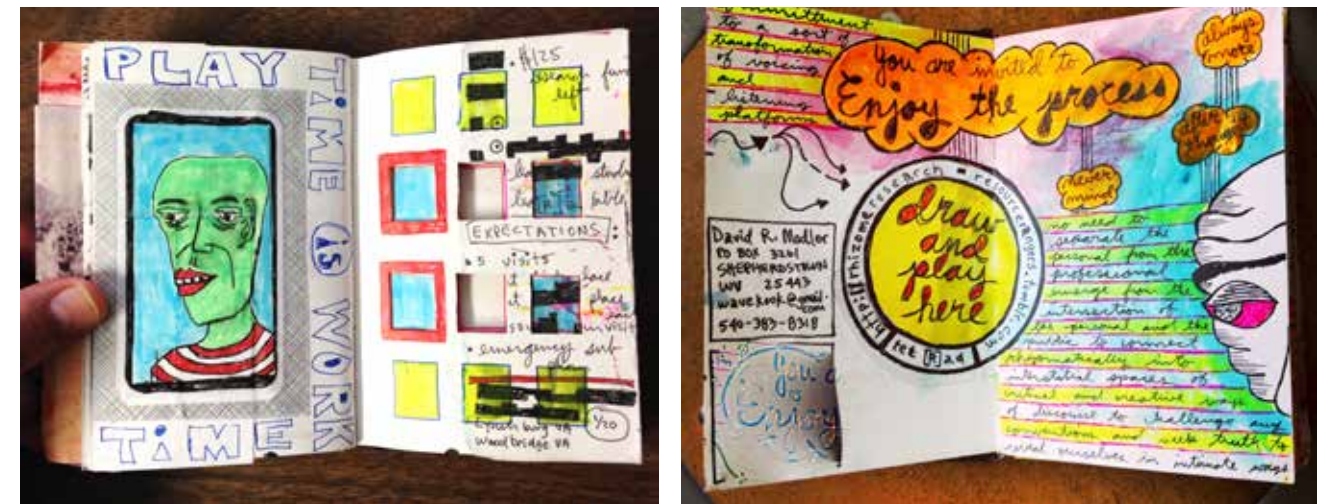 PLAY
TiME (is) WORK
TiME
. $125
research fun
left
EXPECTATIONS:
5 visits
place
• emergency sub
Lynchburg VA
Woodbridge VA
1/20
committment
to a sort of
transformation
of voicing
and
listening
platforms
You are invited to
Enjoy the process
always
never
mind
draw
and
play
here
http://rhizomeresearch = resourcerangers.tumblr.com
tet [R] ad
David R. Modler
PO BOX 3261
SHEPHERDSTOWN
WV 25443
wavekook@gmail.com
540-383-8318
You a
Enjoy
no need to
separate the
personal from the
professional
emerge from the
intersection of
the personal and the
public to connect
rhizomatically into
interstitial spaces of
virtual and creative ways
of discourse to challenge any
conventions and seek truth to
reveal ourselves in intimate ways